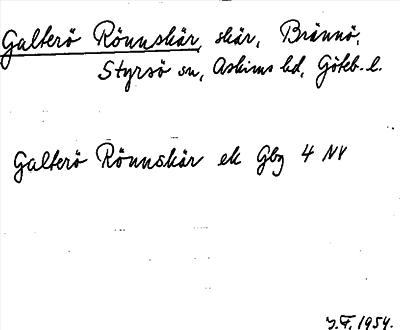 Galterö Rönnskär, skär, Brännö,
Styrsö sn, Askims hd, Göteb. l.
Galterö Rönnskär ek Gbg 4 NV
J.F. 1954.